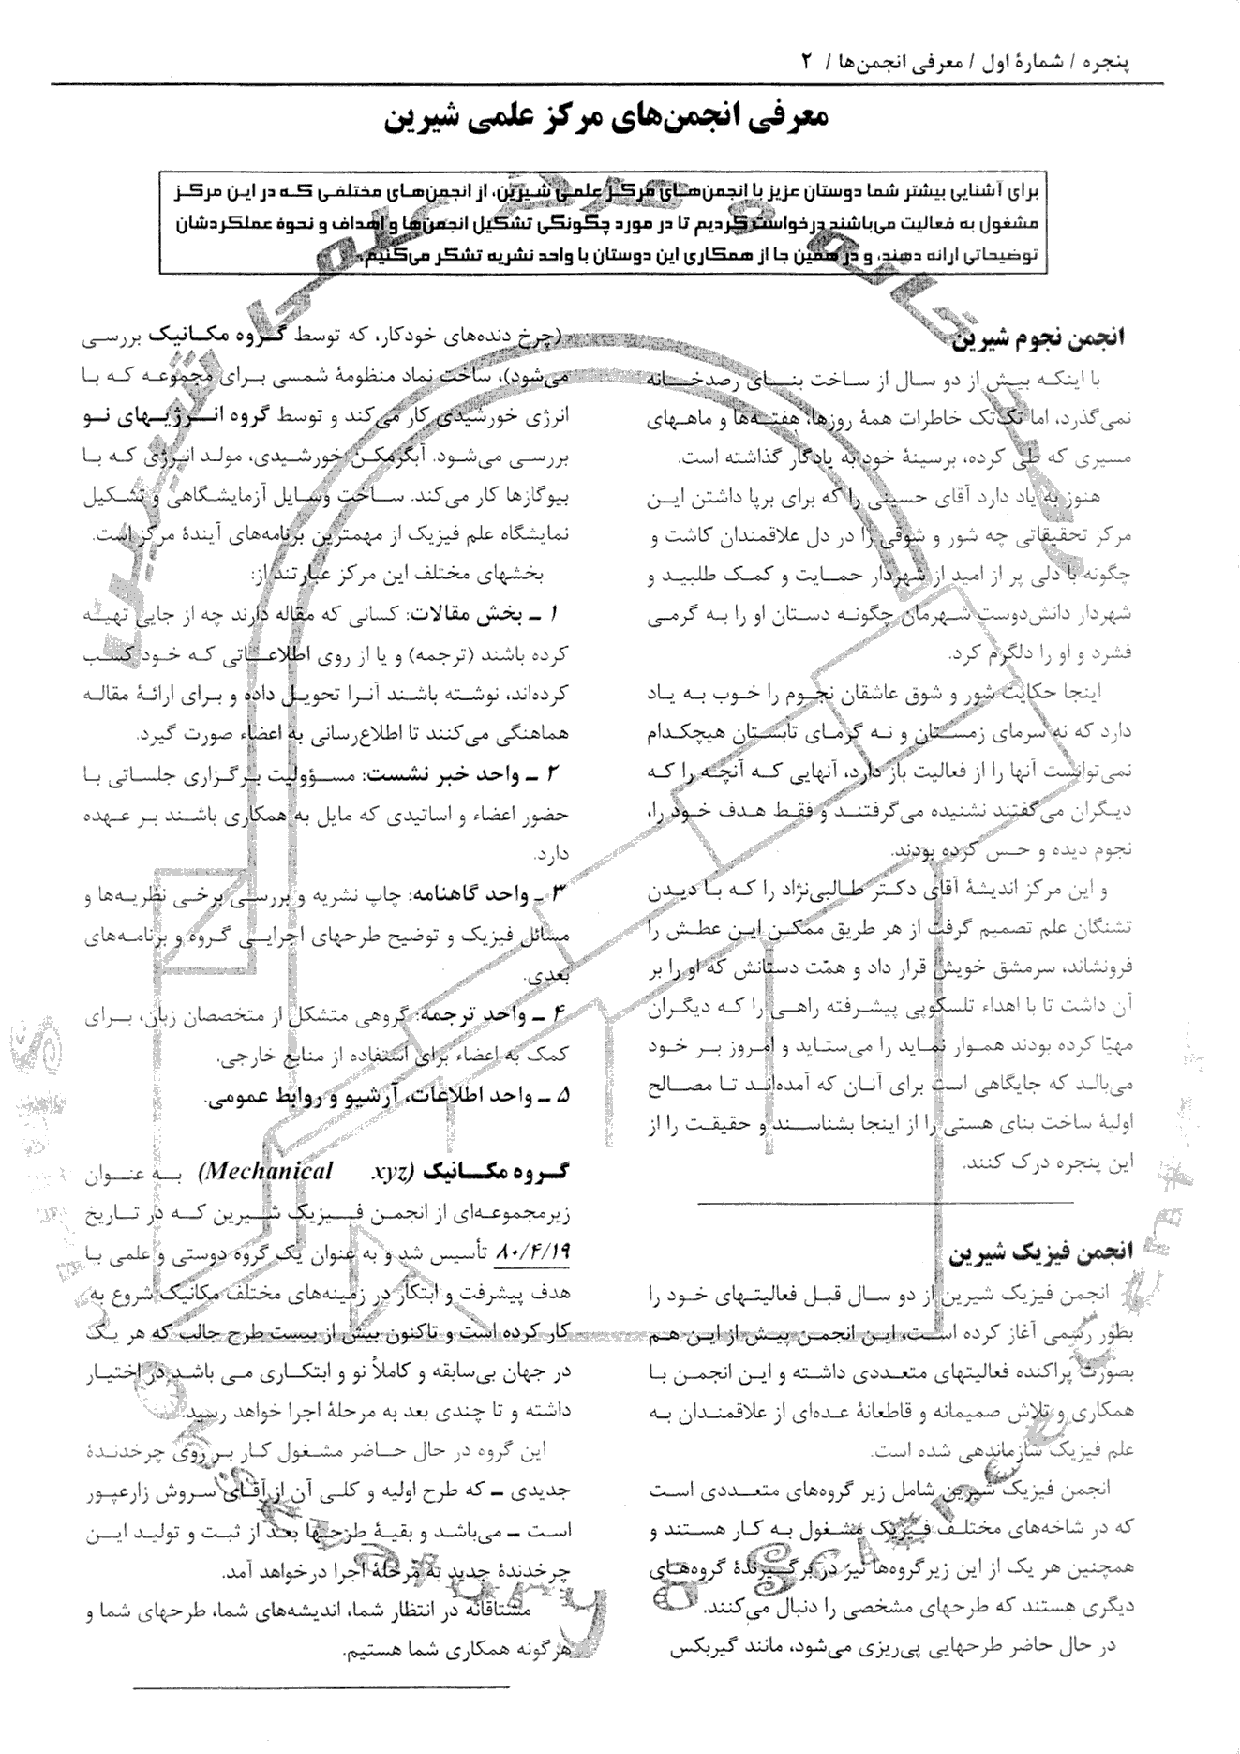 پنجره / شمارهٔ اول / معرفی انجمن‌ها / ۲
معرفی انجمن‌های مرکز علمی شیرین
برای آشنایی بیشتر شما دوستان عزیز با انجمن‌های مرکز علمی شیرین، از انجمن‌های مختلفی که در این مرکز
مشغول به فعالیت می‌باشند درخواست کردیم تا در مورد چگونگی تشکیل انجمن‌ها و اهداف و نحوهٔ عملکردشان
توضیحاتی ارائه دهند، و در همین جا از همکاری این دوستان با واحد نشریه تشکر می‌کنیم.
انجمن نجوم شیرین
با اینکه بیش از دو سال از ساخت بنای رصدخانه
نمی‌گذرد، اما تک‌تک خاطرات همهٔ روزها، هفته‌ها و ماههای
مسیری که طی کرده، برسینهٔ خود به یادگار گذاشته است.
هنوز به یاد دارد آقای حسینی را که برای برپا داشتن این
مرکز تحقیقاتی چه شور و شوقی را در دل علاقمندان کاشت و
چگونه با دلی پر از امید از شهردار حمایت و کمک طلبید و
شهردار دانش‌دوست شهرمان چگونه دستان او را به گرمی
فشرد و او را دلگرم کرد.
اینجا حکایت شور و شوق عاشقان نجوم را خوب به یاد
دارد که نه سرمای زمستان و نه گرمای تابستان هیچکدام
نمی‌توانست آنها را از فعالیت باز دارد، آنهایی که آنچه را که
دیگران می‌گفتند نشنیده می‌گرفتند و فقط هدف خود را،
نجوم دیده و حس کرده بودند.
و این مرکز اندیشهٔ آقای دکتر طالبی‌نژاد را که با دیدن
تشنگان علم تصمیم گرفت از هر طریق ممکن این عطش را
فرونشاند، سرمشق خویش قرار داد و همّت دستانش که او را بر
آن داشت تا با اهداء تلسکوپی پیشرفته راهی را که دیگران
مهیّا کرده بودند هموار نماید را می‌ستاید و امروز بر خود
می‌بالد که جایگاهی است برای آنان که آمده‌اند تا مصالح
اولیهٔ ساخت بنای هستی را از اینجا بشناسند و حقیقت را از
این پنجره درک کنند.
انجمن فیزیک شیرین
انجمن فیزیک شیرین از دو سال قبل فعالیتهای خود را
بطور رسمی آغاز کرده است، این انجمن پیش از این هم
بصورت پراکنده فعالیتهای متعددی داشته و این انجمن با
همکاری و تلاش صمیمانه و قاطعانهٔ عده‌ای از علاقمندان به
علم فیزیک سازماندهی شده است.
انجمن فیزیک شیرین شامل زیر گروه‌های متعددی است
که در شاخه‌های مختلف فیزیک مشغول به کار هستند و
همچنین هر یک از این زیرگروه‌ها نیز در برگیرندهٔ گروه‌های
دیگری هستند که طرحهای مشخصی را دنبال می‌کنند.
در حال حاضر طرحهایی پی‌ریزی می‌شود، مانند گیربکس
(چرخ دنده‌های خودکار، که توسط گروه مکانیک بررسی
می‌شود)، ساخت نماد منظومهٔ شمسی برای مجموعه که با
انرژی خورشیدی کار می‌کند و توسط گروه انرژیهای نو
بررسی می‌شود. آبگرمکن خورشیدی، مولد انرژی که با
بیوگازها کار می‌کند. ساخت وسایل آزمایشگاهی و تشکیل
نمایشگاه علم فیزیک از مهمترین برنامه‌های آیندهٔ مرکز است.
بخشهای مختلف این مرکز عبارتند از:
۱ ـ بخش مقالات: کسانی که مقاله دارند چه از جایی تهیه
کرده باشند (ترجمه) و یا از روی اطلاعاتی که خود کسب
کرده‌اند، نوشته باشند آنرا تحویل داده و برای ارائهٔ مقاله
هماهنگی می‌کنند تا اطلاع‌رسانی به اعضاء صورت گیرد.
۲ ـ واحد خبر نشست: مسؤولیت برگزاری جلساتی با
حضور اعضاء و اساتیدی که مایل به همکاری باشند بر عهده
دارد.
۳ ـ واحد گاهنامه: چاپ نشریه و بررسی برخی نظریه‌ها و
مسائل فیزیک و توضیح طرحهای اجرایی گروه و برنامه‌های
بعدی.
۴ ـ واحد ترجمه: گروهی متشکل از متخصصان زبان، برای
کمک به اعضاء برای استفاده از منابع خارجی.
۵ ـ واحد اطلاعات، آرشیو و روابط عمومی.
گروه مکانیک (Mechanical xyz) به عنوان
زیرمجموعه‌ای از انجمن فیزیک شیرین که در تاریخ
۸۰/۴/۱۹ تأسیس شد و به عنوان یک گروه دوستی و علمی با
هدف پیشرفت و ابتکار در زمینه‌های مختلف مکانیک شروع به
کار کرده است و تاکنون بیش از بیست طرح جالب که هر یک
در جهان بی‌سابقه و کاملاً نو و ابتکاری می باشد در اختیار
داشته و تا چندی بعد به مرحلهٔ اجرا خواهد رسید.
این گروه در حال حاضر مشغول کار بر روی چرخدندهٔ
جدیدی ـ که طرح اولیه و کلی آن از آقای سروش زارعپور
است ـ می‌باشد و بقیهٔ طرحها بعد از ثبت و تولید این
چرخدندهٔ جدید به مرحلهٔ اجرا درخواهد آمد.
مشتاقانه در انتظار شما، اندیشه‌های شما، طرحهای شما و
هرگونه همکاری شما هستیم.